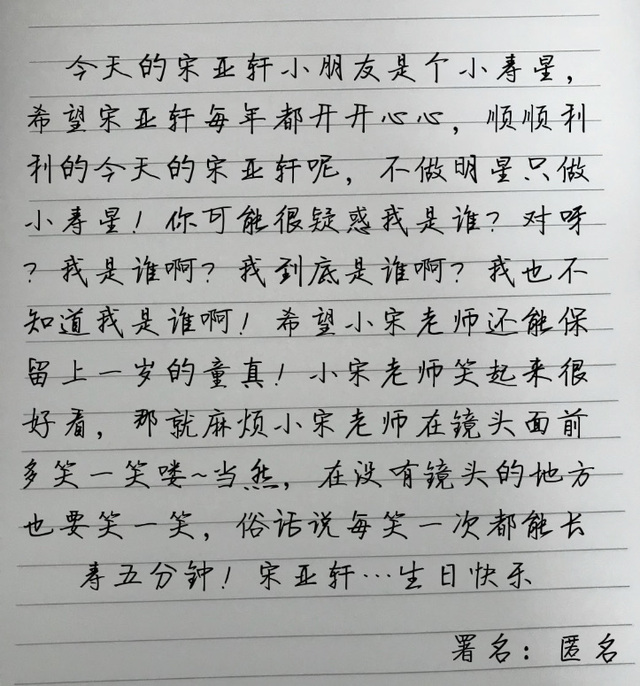 今天的宋亚轩小朋友是个小寿星，
希望宋亚轩每年都开开心心，顺顺利
利的今天的宋亚轩呢，不做明星只做
小寿星！你可能很疑惑我是谁？对呀
？我是谁啊？我到底是谁啊？我也不
知道我是谁啊！希望小宋老师还能保
留上一岁的童真！小宋老师笑起来很
好看，那就麻烦小宋老师在镜头面前
多笑一笑喽~当然，在没有镜头的地方
也要笑一笑，俗话说每笑一次都能长
寿五分钟！宋亚轩…生日快乐
署名：匿名